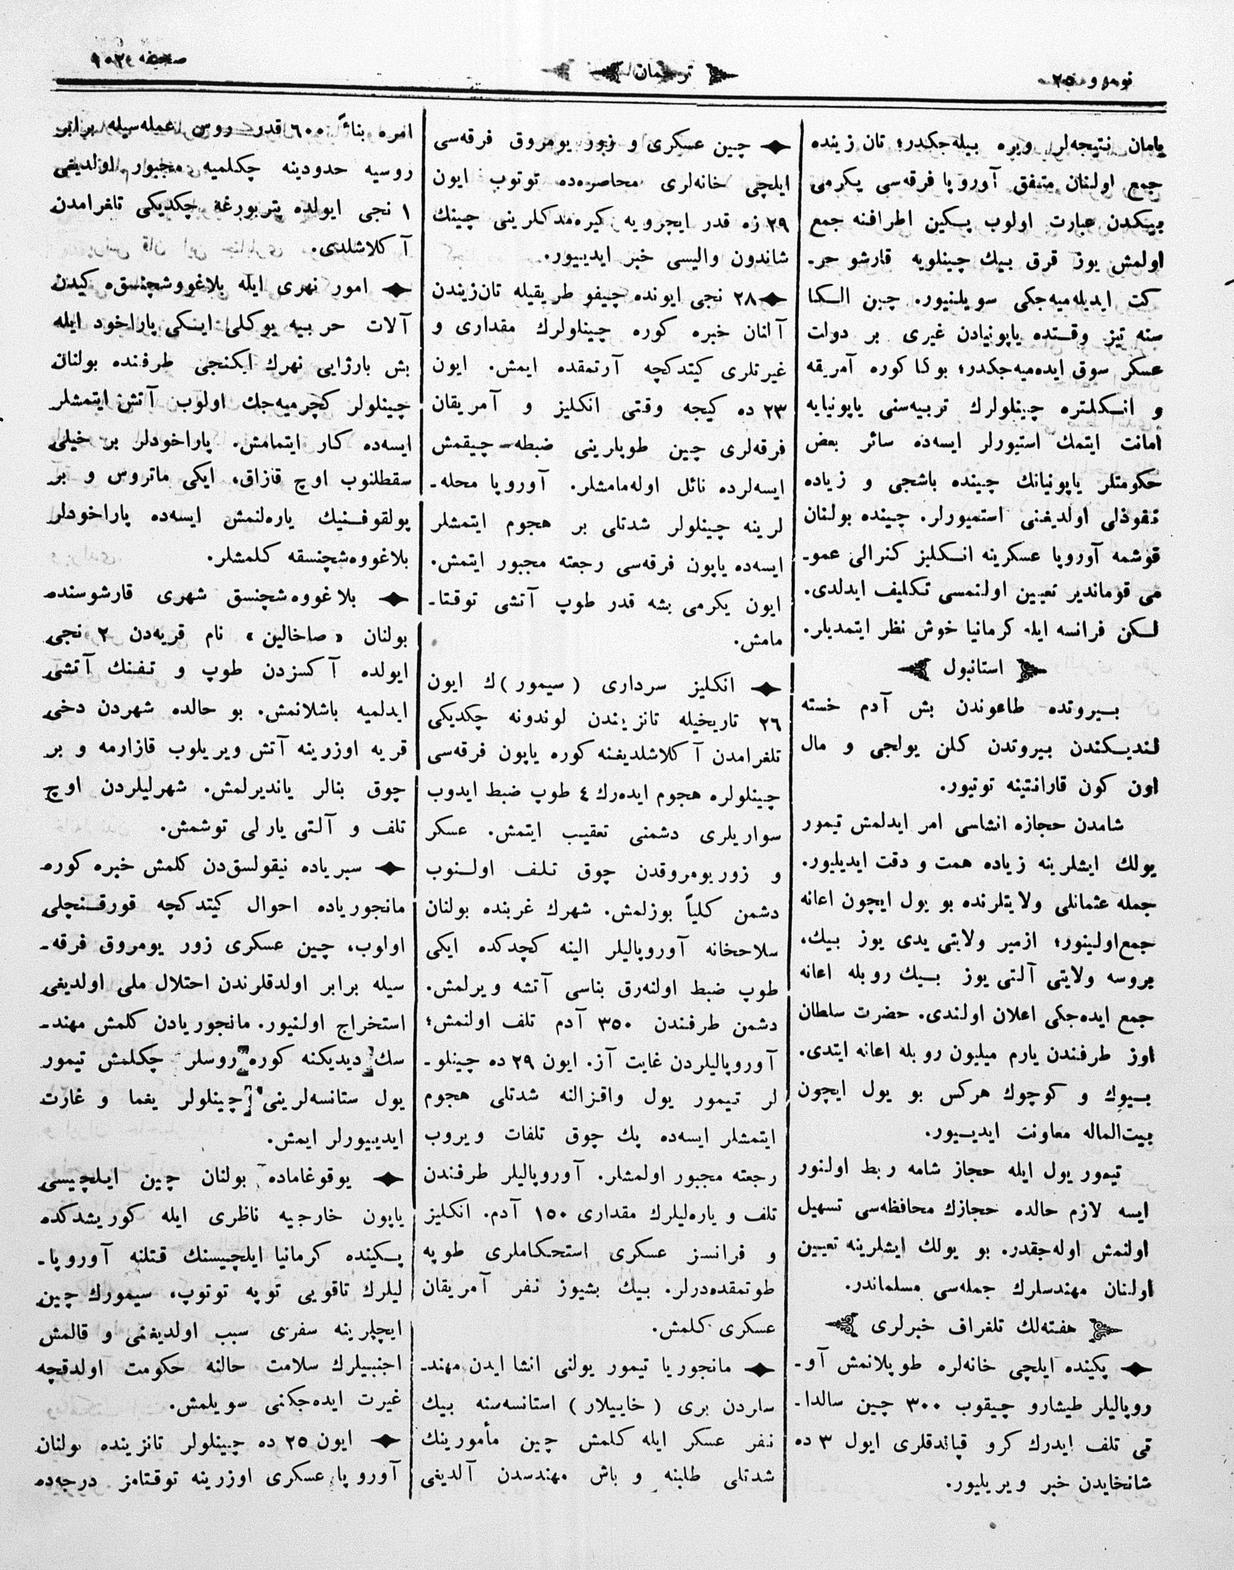 نومرو ٢٥
ترجمان
صحیفه
یامان نتیجه‌لر ویره بیله‌جکدر؛ تان زینده
جمع اولنان متفق آوروپا فرقه‌سی یکرمی
بیکدن عبارت اولوب پکین اطرافنه جمع
اولمش یوز قرق بیك چینلویه قارشو حر-
کت ایدیله‌میه‌جکی سویلنیور. چین الکا
سنه تیز وقتده یاپونیادن غیری بر دولت
عسکر سوق ایده‌میه‌جکدر؛ بوکا کوره آمریقه
و انکلتره چینلولرك تربیه‌سنی یاپونیایه
امانت ایتمك استیورلر ایسه‌ده سائر بعض
حکومتلر یاپونیانك چینده باشجی و زیاده
نفوذلی اولدیغنی استمیورلر. چینده بولنان
قوشمه آوروپا عسکرینه انکلیز کنرالی عمو-
می قوماندیر تعیین اولنمسی تکلیف ایدلدی.
لکن فرانسه ایله کرمانیا خوش نظر ایتمدیلر.
استانبول
بیروتده طاعوندن بش آدم خسته
لندیکندن بیروتدن کلن یولجی و مال
اون کون قارانتینه توتیور.
شامدن حجازه انشاسی امر ایدلمش تیمور
یولك ایشلرینه زیاده همت و دقت ایدیلیور.
جمله عثمانلی ولایتلرنده بو یول ایچون اعانه
جمع اولینور؛ ازمیر ولایتی یدی یوز بیك،
بروسه ولایتی آلتی یوز بیك روبله اعانه
جمع ایده‌جکی اعلان اولندی. حضرت سلطان
اوز طرفندن یارم میلیون روبله اعانه ایتدی.
بیوك و کوچوك هرکس بو یول ایچون
بیت‌الماله معاونت ایدیور.
تیمور یول ایله حجاز شامه ربط اولنور
ایسه لازم حالده حجازك محافظه‌سی تسهیل
اولنمش اوله‌جقدر. بو یولك ایشلرینه تعیین
اولنان مهندسلرك جمله‌سی مسلماندر.
هفته‌لك تلغراف خبرلری
پکینده ایلچی خانه‌لره طوپلانمش آو-
روپالیلر طیشارو چیقوب ٣٠٠ چین سالدا-
تی تلف ایدرك کرو قپاندقلری ایول ٣ ده
شانخایدن خبر ویریلیور.
چین عسکری و زور یومروق فرقه‌سی
ایلچی خانه‌لری محاصره‌ده توتوب ایون
٢٩ زه قدر ایچرویه کیره‌مدکلرینی چینك
شاندون والیسی خبر ایدییور.
٢٨ نجی ایونده چیفو طریقیله تان‌زیندن
آلنان خبره کوره چینلولرك مقداری و
غیرتلری کیتدکچه آرتمقده ایمش. ایون
٢٣ ده کیجه وقتی انکلیز و آمریقان
فرقه‌لری چین طوپلرینی ضبطه چیقمش
ایسه‌لرده نائل اوله‌مامشلر. آوروپا محله-
لرینه چینلولر شدتلی بر هجوم ایتمشلر
ایسه‌ده یاپون فرقه‌سی رجعته مجبور ایتمش.
ایون یکرمی بشه قدر طوپ آتشی توقتا-
مامش.
انکلیز سرداری (سیمور)ك ایون
٢٦ تاریخیله تانزیندن لوندونه چکدیکی
تلغرامدن آکلاشلدیغنه کوره یاپون فرقه‌سی
چینلولره هجوم ایده‌رك ٤ طوپ ضبط ایدوب
سواریلری دشمنی تعقیب ایتمش. عسکر
و زوریومروقدن چوق تلف اولنوب
دشمن کلیاً بوزلمش. شهرك غربنده بولنان
سلاحخانه آوروپالیلر الینه کچدکده ایکی
طوپ ضبط اولنه‌رق بناسی آتشه ویرلمش.
دشمن طرفندن ٣٥٠ آدم تلف اولنمش؛
آوروپالیلردن غایت آز. ایون ٢٩ ده چینلو-
لر تیمور یول واقزالنه شدتلی هجوم
ایتمشلر ایسه‌ده پك چوق تلفات ویروب
رجعته مجبور اولمشلر. آوروپالیلر طرفندن
تلف و یاره‌لیلرك مقداری ١٥٠ آدم. انکلیز
و فرانسز عسکری استحکاملری طوپه
طوتمقده‌درلر. بیك بشیوز نفر آمریقان
عسکری کلمش.
مانجوریا تیمور یولنی انشا ایدن مهند-
سلردن بری (خایبلار) استانسه‌سنه بیك
نفر عسکر ایله کلمش چین مأمورینك
شدتلی طلبنه و باش مهندسدن آلدیغی
امره بناءً ٦٠٠ قدر روس عمله‌سیله برابر
روسیه حدودینه چکلمیه مجبور اولدیغی
١ نجی ایولده پتربورغه چکدیکی تلغرامدن
آکلاشلدی.
امور نهری ایله بلاغووشچنسقه کیدن
آلات حربیه یوکلی ایکی پاراخود ایله
بش بارژایی نهرك ایکنجی طرفنده بولنان
چینلولر کچرمیه‌جك اولوب آتش ایتمشلر
ایسه‌ده کار ایتمامش. پاراخودلر بر خیلی
سقطلنوب اوچ قازاق، ایکی ماتروس و بر
پولقوفنیك یاره‌لنمش ایسه‌ده پاراخودلر
بلاغووه‌شچنسقه کلمشلر.
بلاغووه‌شچنسق شهری قارشوسنده
بولنان «صاخالین» نام قریه‌دن ٢ نجی
ایولده آکسزدن طوپ و تفنك آتشی
ایدلمیه باشلانمش. بو حالده شهردن دخی
قریه اوزرینه آتش ویریلوب قازارمه و بر
چوق بنالر یاندیرلمش. شهرلیلردن اوچ
تلف و آلتی یارلی توشمش.
سبریاده نیقولسق‌دن کلمش خبره کوره
مانجوریاده احوال کیتدکچه قورقنچلی
اولوب، چین عسکری زور یومروق فرقه-
سیله برابر اولدقلرندن احتلال ملی اولدیغی
استخراج اولنیور. مانجوریادن کلمش مهند-
سك دیدیکنه کوره روسلر چکلمش تیمور
یول ستانسه‌لرینی چینلولر یغما و غارت
ایدییورلر ایمش.
یوقوغاماده بولنان چین ایلچیسی
یاپون خارجیه ناظری ایله کوریشدکده
پکینده کرمانیا ایلچیسنك قتلنه آوروپا-
لیلرك تاقویی توپه توتوپ، سیمورك چین
ایچلرینه سفری سبب اولدیغنی و قالمش
اجنبیلرك سلامت حالنه حکومت اولدقچه
غیرت ایده‌جکنی سویلمش.
ایون ٢٥ ده چینلولر تانزینده بولنان
آوروپا عسکری اوزرینه توقتامز درجه‌ده